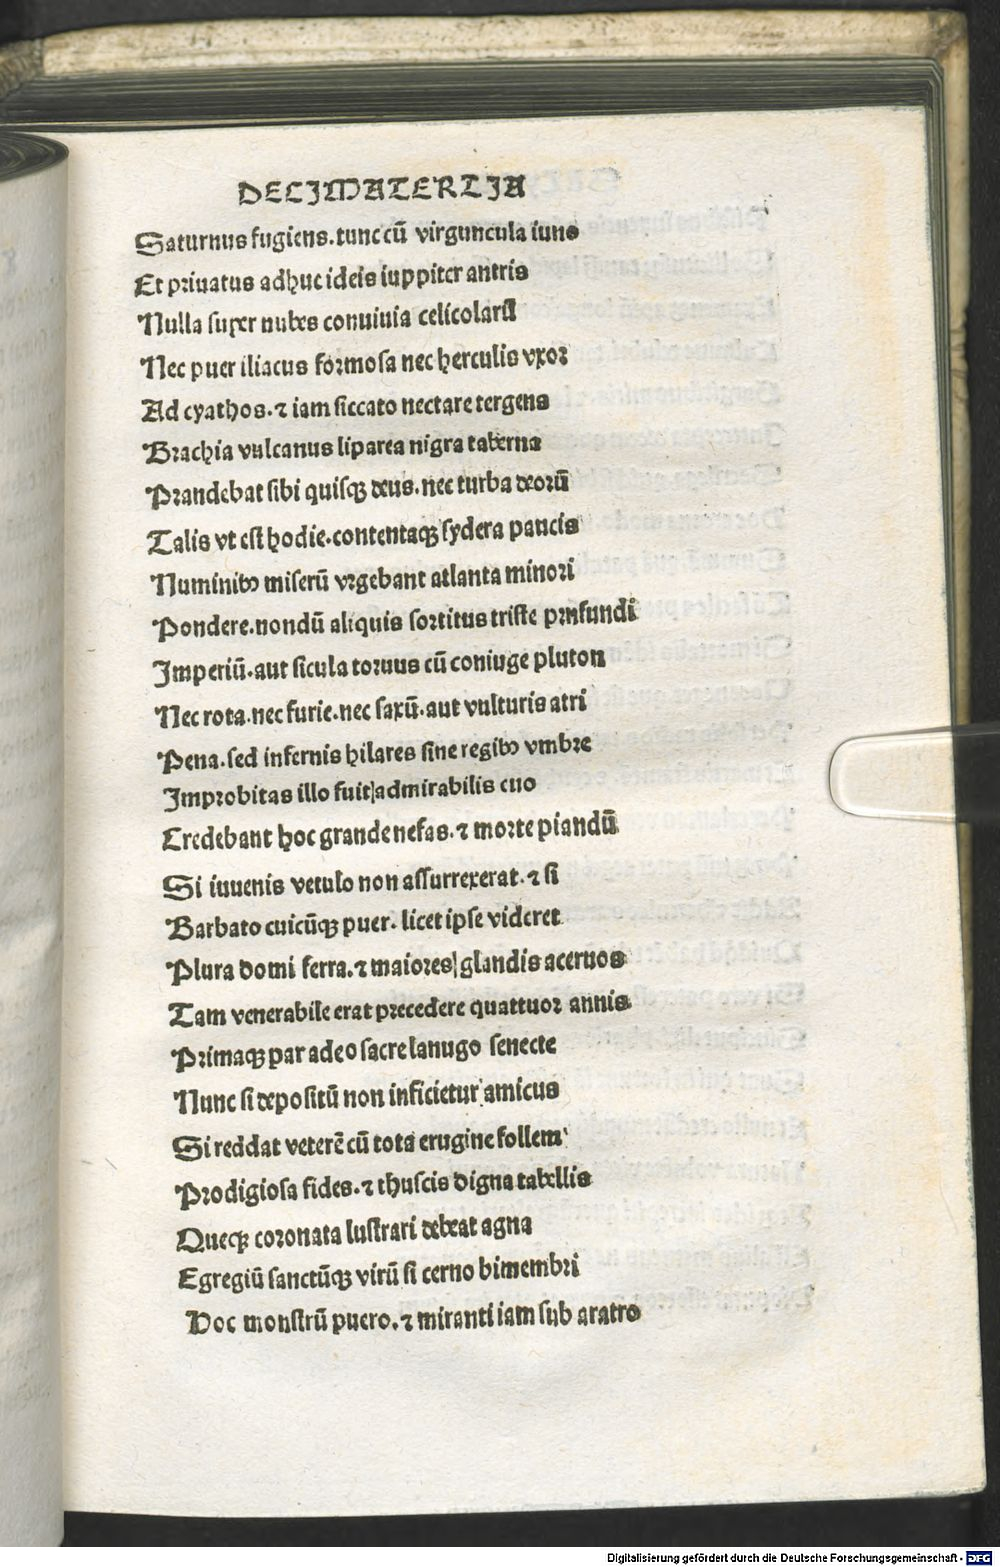 DECIMATERTIA
Saturnus fugiens.tunc cū virguncula iuno
Et priuatus adhuc ideis iuppiter antris
Nulla super nubes conuiuia celicolarū
Nec puer iliacus formosa nec herculis vxor
Ad cyathos.⁊ iam siccato nectare tergens
Brachia vulcanus liparea nigra taberna
Prandebat sibi quisqꝫ deus.nec turba deorū
Talis vt est hodie.contentaqꝫ sydera paucis
Numinibꝰ miserū vrgebant atlanta minori
Pondere.nondū aliquis sortitus triste profundi
Imperiū.aut sicula toruus cū coniuge pluton
Nec rota.nec furie.nec saxū.aut vulturis atri
Pena.sed infernis hilares sine regibꝰ vmbre
Improbitas illo fuit admirabilis euo
Credebant hoc grande nefas.⁊ morte piandū
Si iuuenis vetulo non assurrexerat.⁊ si
Barbato cuicūqꝫ puer. licet ipse videret
Plura domi ferra.⁊ maiores glandis aceruos
Tam venerabile erat precedere quattuor annis
Primaqꝫ par adeo sacre lanugo senecte
Nunc si depositū non inficietur amicus
Si reddat veterē cū tota erugine follem
Prodigiosa fides.⁊ thuscis digna tabellis
Queqꝫ coronata lustrari debeat agna
Egregiū sanctūqꝫ virū si cerno bimembri
Hoc monstrū puero.⁊ miranti iam sub aratro
Digitalisierung gefördert durch die Deutsche Forschungsgemeinschaft - DFG